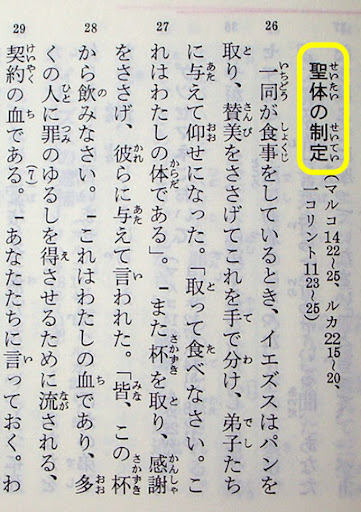 聖体の制定(マルコ14 22〜25、ルカ22 15〜20、
一コリント11 23〜25)
26 一同が食事をしているとき、イエズスはパンを
取り、賛美をささげてこれを手で分け、弟子たち
に与えて仰せになった。「取って食べなさい。こ
27 れはわたしの体である」。また杯を取り、感謝
をささげ、彼らに与えて言われた。「皆、この杯
28 から飲みなさい。これはわたしの血であり、多
くの人に罪のゆるしを得させるために流される、
29 契約の血である。(7)あなたたちに言っておく。わ